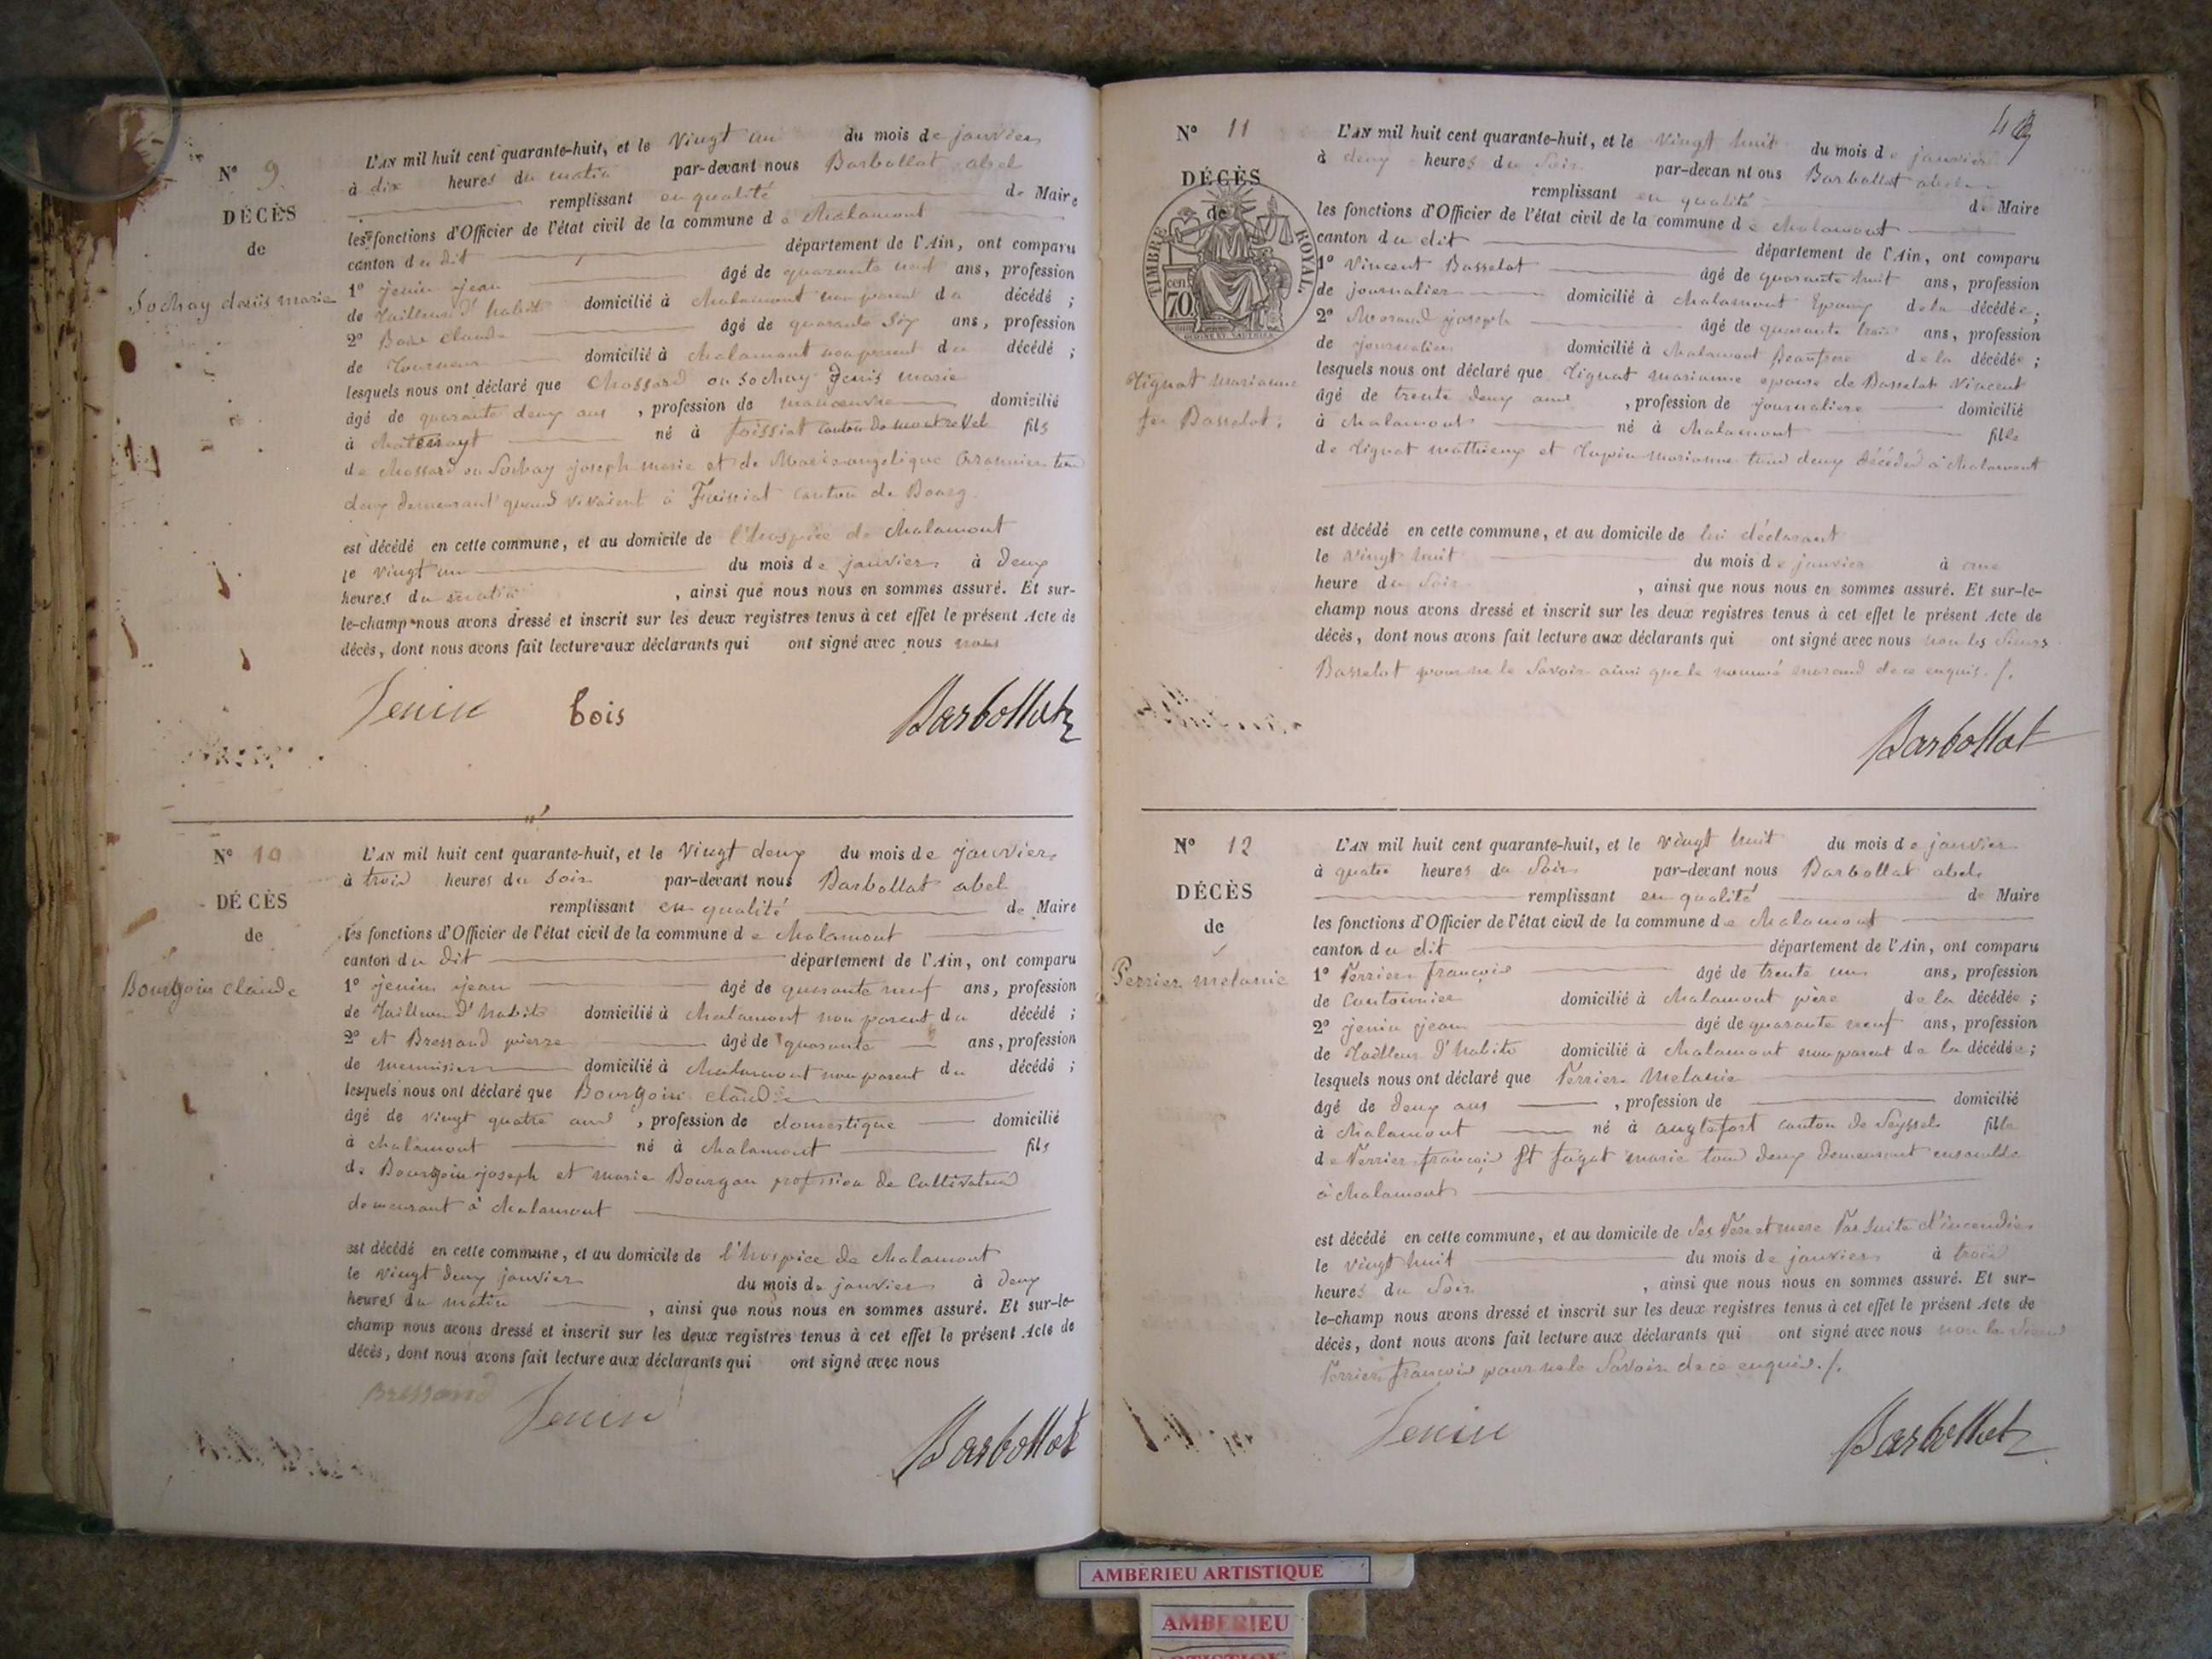 N° 9
DÉCÈS
de
Sochay denis marie
L'AN mil huit cent quarante-huit, et le Vingt un du mois de janvier
à dix heures du matin par-devant nous Barbollat abel
remplissant en qualité de Maire
les fonctions d'Officier de l'état civil de la commune de chalamont
canton du dit département de l'Ain, ont comparu
1° jenin jean âgé de quarante neuf ans, profession
de Tailleur d'habits domicilié à chalamont non parent du décédé ;
2° Bois Claude âgé de quarante Six ans, profession
de Tourneur domicilié à chalamont non parent du décédé ;
lesquels nous ont déclaré que Chossard ou Sochay Denis marie
âgé de quarante deux ans , profession de manoeuvre domicilié
à né à foissiat canton de montrevel fils
de chossard ou Sochay joseph marie et de Marie angelique tous
deux demeurant quand vivaient à Foissiat canton de Bourg
est décédé en cette commune, et au domicile de l'hospice de chalamont
le vingt un du mois de janvier à Deux
heures du matin , ainsi que nous nous en sommes assuré. Et sur-
le-champ nous avons dressé et inscrit sur les deux registres tenus à cet effet le présent Acte de
décès, dont nous avons fait lecture aux déclarants qui ont signé avec nous
Jenin bois Barbollat
N° 10
DÉCÈS
de
Bourgoin Claude
L'AN mil huit cent quarante-huit, et le Vingt deux du mois de janvier
à trois heures du Soir par-devant nous Barbollat abel
remplissant en qualité de Maire
les fonctions d'Officier de l'état civil de la commune de chalamont
canton du dit département de l'Ain, ont comparu
1° jenin jean âgé de quarante neuf ans, profession
de Tailleur d'habits domicilié à chalamont non parent du décédé ;
2° et Bressand pierre âgé de quarante ans, profession
de menuisier domicilié à chalamont non parent du décédé ;
lesquels nous ont déclaré que Bourgoin claude
âgé de vingt quatre ans , profession de domestique domicilié
à chalamont né à chalamont fils
de Bourgoin joseph et marie Bourgon profession de Cultivateurs
demeurant à chalamont
est décédé en cette commune, et au domicile de l'hospice de chalamont
le vingt deux janvier du mois de janvier à Deux
heures du matin , ainsi que nous nous en sommes assuré. Et sur-le-
champ nous avons dressé et inscrit sur les deux registres tenus à cet effet le présent Acte de
décès, dont nous avons fait lecture aux déclarants qui ont signé avec nous
Bressand Jenin Barbollat
N° 11
DÉCÈS
de
TIMBRE ROYAL
cen
70
Tignat marianne
fe Basselot.
L'AN mil huit cent quarante-huit, et le Vingt huit du mois de janvier
à deux heures du Soir par-devan nt ous Barbollat abel
remplissant en qualité de Maire
les fonctions d'Officier de l'état civil de la commune de chalamont
canton du dit département de l'Ain, ont comparu
1° Vincent Basselot âgé de quarante huit ans, profession
de journalier domicilié à chalamont Epoux de la décédée ;
2° Morand joseph âgé de quarante trois ans, profession
de journalier domicilié à chalamont beaufrere de la décédée ;
lesquels nous ont déclaré que Tignat marianne epouse de Basselot Vincent
âgé de trente deux ans , profession de journaliere domicilié
à chalamont né à chalamont fille
de Tignat mathieux et marianne tous deux décédés à chalamont
est décédé en cette commune, et au domicile de lui déclarant
le vingt huit du mois de janvier à une
heure du Soir , ainsi que nous nous en sommes assuré. Et sur-le-
champ nous avons dressé et inscrit sur les deux registres tenus à cet effet le présent Acte de
décès, dont nous avons fait lecture aux déclarants qui ont signé avec nous non les Sieurs
Basselot pour ne le Savoir ainsi que le nommé morand de ce enquis ./.
Barbollat
N° 12
DÉCÈS
de
Perrier melanie
L'AN mil huit cent quarante-huit, et le vingt huit du mois de janvier
à quatre heures du Soir par-devant nous Barbollat abel
remplissant en qualité de Maire
les fonctions d'Officier de l'état civil de la commune de chalamont
canton du dit département de l'Ain, ont comparu
1° Perrier françois âgé de trente un ans, profession
de Cantonnier domicilié à chalamont père de la décédée ;
2° jenin jean âgé de quarante neuf ans, profession
de Tailleur d'habits domicilié à chalamont non parent de la décédée ;
lesquels nous ont déclaré que Perrier Melanie
âgé de deux ans , profession de domicilié
à chalamont né à anglefort canton de Seyssel fille
de Perrier françois et fagot marie tous deux demeurant ensemble
à chalamont
est décédé en cette commune, et au domicile de Ses Père et mere Par Suite d'incendie
le vingt huit du mois de janvier à trois
heures du Soir , ainsi que nous nous en sommes assuré. Et sur-
le-champ nous avons dressé et inscrit sur les deux registres tenus à cet effet le présent Acte de
décès, dont nous avons fait lecture aux déclarants qui ont signé avec nous non le
Perrier françois pour ne le Savoir de ce enquis ./.
Jenin Barbollat
AMBERIEU ARTISTIQUE
AMBERIEU
ARTISTIQUE